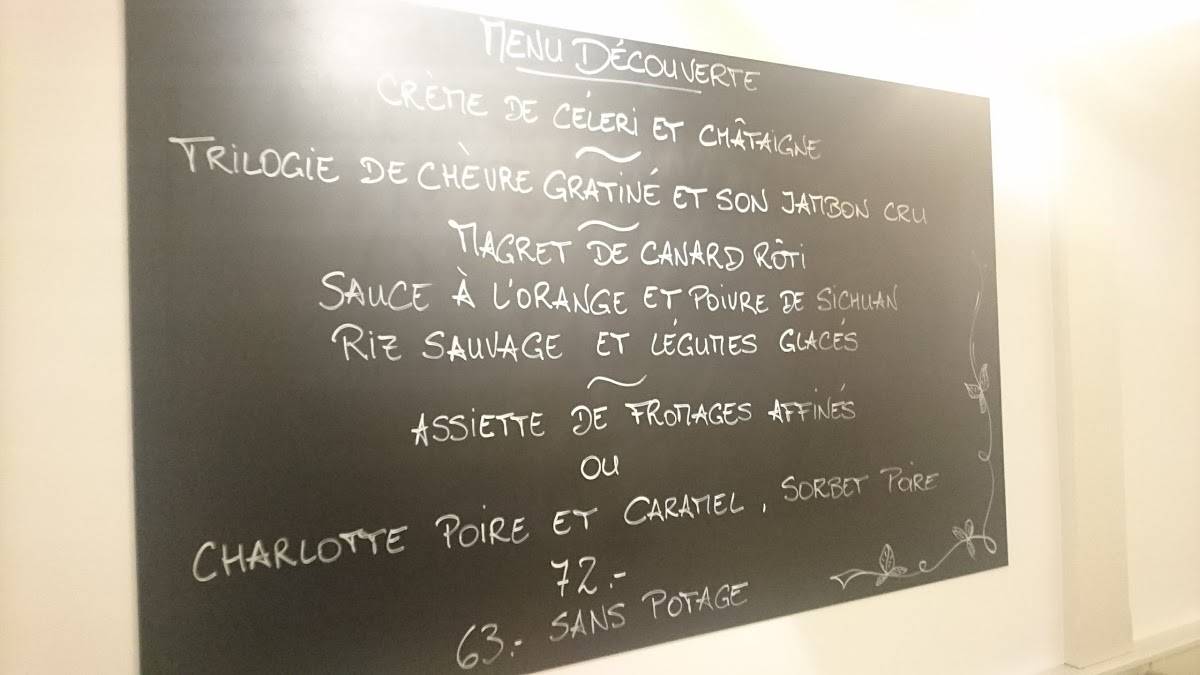 MENU DÉCOUVERTE
CRÈME DE CÉLERI ET CHÂTAIGNE
~
TRILOGIE DE CHÈVRE GRATINÉ ET SON JAMBON CRU
~
MAGRET DE CANARD RÔTI
SAUCE À L'ORANGE ET POIVRE DE SICHUAN
RIZ SAUVAGE ET LÉGUMES GLACÉS
~
ASSIETTE DE FROMAGES AFFINÉS
OU
CHARLOTTE POIRE ET CARAMEL, SORBET POIRE
72.-
63.- SANS POTAGE